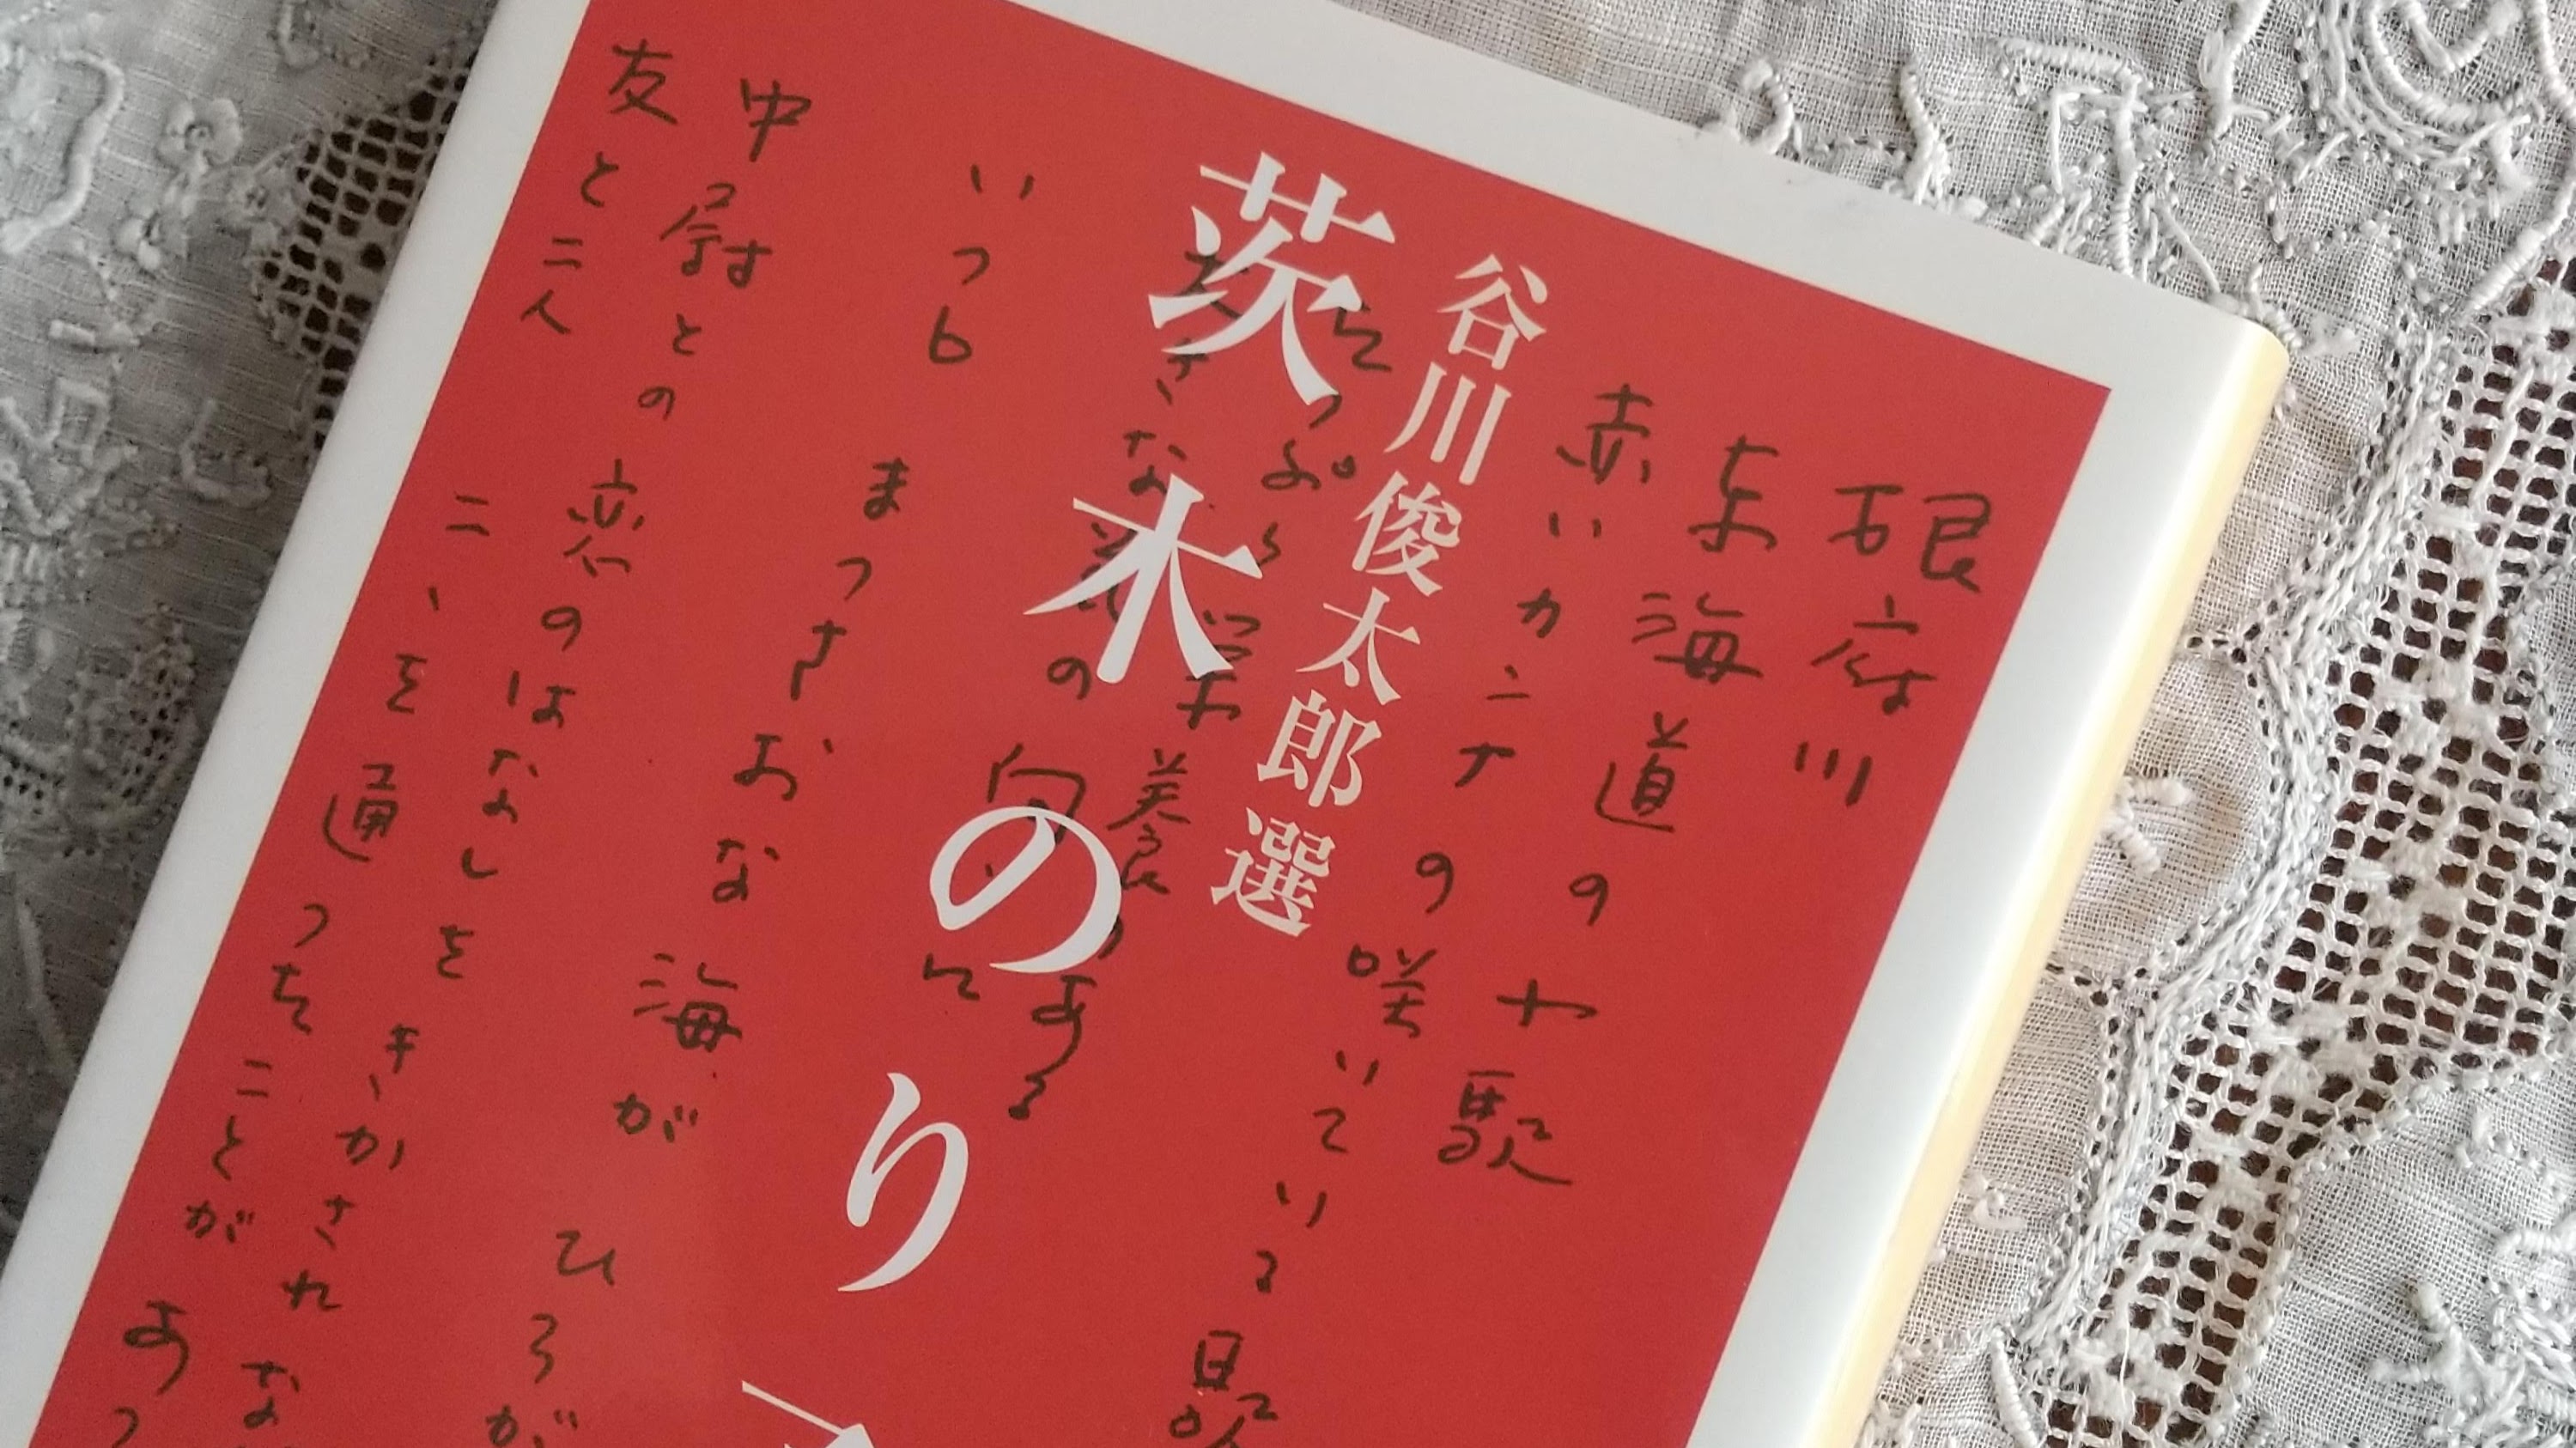 根府川
東海道の小駅
赤いカンナの咲いている駅
谷川俊太郎選
たっぷり栄養のある
茨木のり
大きな花の向うに
いつも まっさおな海がひろが
中尉との恋のはなしをきかされな
友と二人 ここを通ったことがあっ